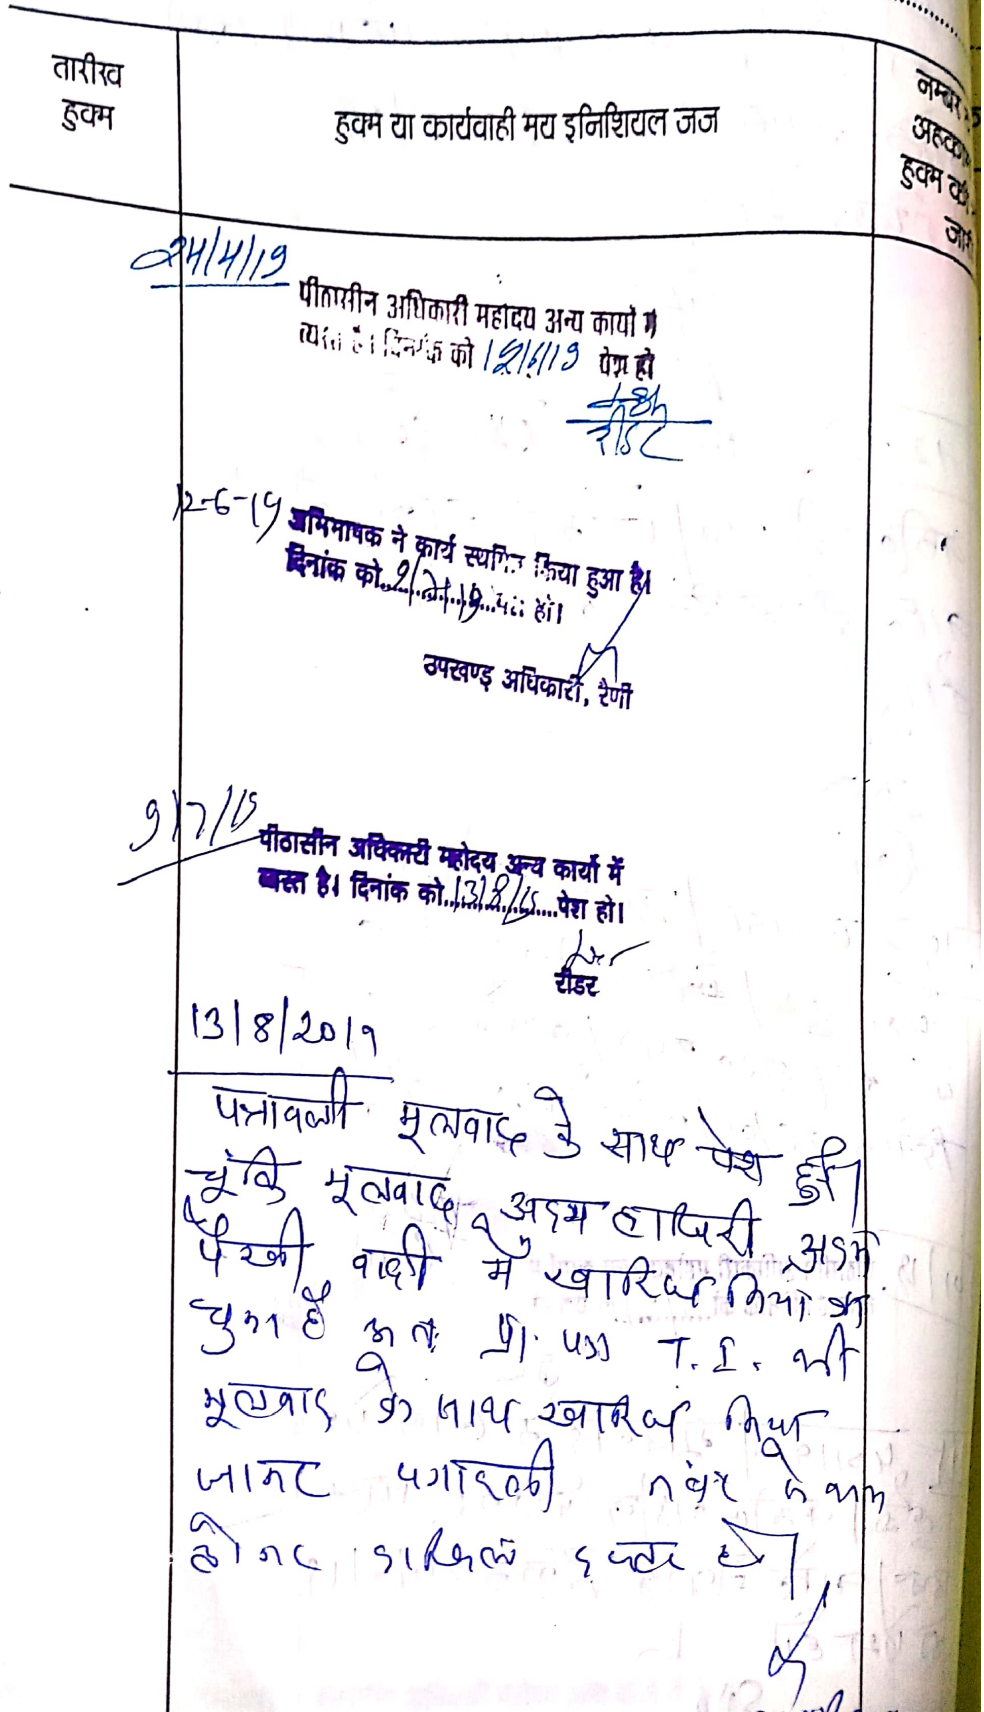 तारीख
हुक्म
हुक्म या कार्यवाही मय इनिशियल जज
नम्बर
अहकाम
हुक्म की
जारी
24/4/19
पीठासीन अधिकारी महोदय अन्य कार्यो में
व्यस्त है। दिनांक को 12/6/19 पेश हो
रीडर
12-6-19
अभिभाषक ने कार्य स्थगित किया हुआ है।
दिनांक को 9/7/19 पेश हो।
उपखण्ड अधिकारी, रैणी
9/7/19
पीठासीन अधिकारी महोदय अन्य कार्यो में
व्यस्त है। दिनांक को 13/8/19 पेश हो।
रीडर
13/8/2019
पत्रावली मूलवाद के साथ पेश हुई।
चूंकि मूलवाद अदम हाजिरी अदम
पैरवी वादी में खारिज किया जा
चुका है अतः प्रा. पत्र T.I. भी
मूलवाद के साथ खारिज किया
जाकर पत्रावली नंबर से कम
होकर दाखिल दफ्तर हो।